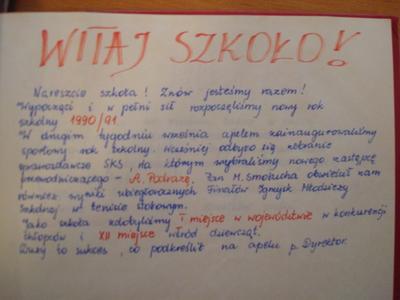 WITAJ SZKOŁO!
Nareszcie szkoła! Znów jesteśmy razem!
Wypoczęci i w pełni sił rozpoczęliśmy nowy rok
szkolny 1990/91
W drugim tygodniu września apelem zainaugurowaliśmy
sportowy rok szkolny. Wcześniej odbyło się zebranie
sprawozdawcze SKS, na którym wybraliśmy nowego zastępcę
przewodniczącego - A. Podrazę. Pan M. Smotucha obwieścił nam
również wyniki ubiegłorocznych Finałów Igrzysk Młodzieży
Szkolnej w tenisie stołowym.
Jako szkoła zdobyliśmy I miejsce w województwie w konkurencji
chłopców i XII miejsce wśród dziewcząt.
Duży to sukces, co podkreślił na apelu p. Dyrektor.